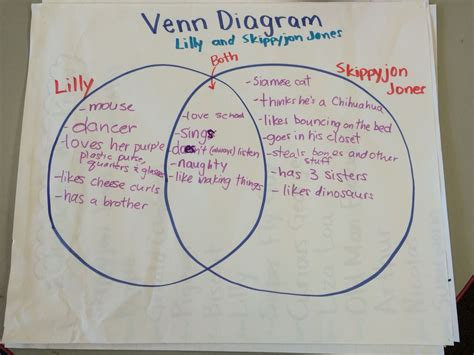 Venn Diagram
Lilly and Skippyjon Jones
Both
Lilly
-mouse
-dancer
-loves her purple
plastic purse,
quarters & glasses
-likes cheese curls
-has a brother
-love school
-sings
-doesn't (always) listen
-naughty
-like making things
Skippyjon
Jones
-siamese cat
-thinks he's a Chihuahua
-likes bouncing on the bed
-goes in his closet
-steals bones and other
stuff
-has 3 sisters
-likes dinosaurs